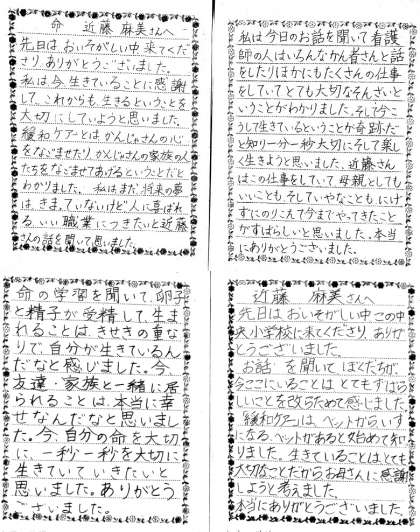 命 近藤 麻美さんへ
先日は、おいそがしい中来てくだ
さり、ありがとうございました。
私は、今生きていることに感謝
して、これからも、生きるということを
大切にしていようと思いました。
緩和ケアーとは、かんじゃさんの心
をなごませたり、かんじゃさんの家族の人
たちをなごませてあげるということだと
わかりました。私はまだ将来の夢
は、きまっていないけど人に喜ばれ
る、いい職業につきたいと近藤
さんの話を聞いて思いました。
私は今日のお話を聞いて看護
師の人はいろんなかん者さんと話
をしたりほかにもたくさんの仕事
をしていてとても大切なそんざいと
いうことがわかりました。そして今こ
うして生きているということが奇跡だ
と知り一分一秒大切にそして楽し
く生きようと思いました。近藤さん
はこの仕事をしていて母親としても
いいことも、そしていやなことも にげ
ずにのりこえて今までやってきたこと
がすばらしいと思いました。本当
にありがとうございました。
命の学習を聞いて、卵子
と精子が受精して、生ま
れることは、きせきの重な
りで、自分が生きているん
だなと感じました。今、
友達・家族と一緒に居
られることは、本当に幸
せなんだなと思いまし
た。今、自分の命を大切
に、一秒一秒を大切に
生きていていきたいと
思いました。ありがとう
ございました。
近藤 麻美さんへ
先日はおいそがしい中この中
央小学校に来てくださり、ありが
とうございました。
お話を聞いてぼくたちが、
今ここにいることは とてもすばら
しいことを改らためて感じました。
「緩和ケアー」は、ベットからいす
になる、ベットがあると始めて知
りました。生きていることはとても
大切なことだからお母さんに感謝
しようと考えました。
本当にありがとうございました。